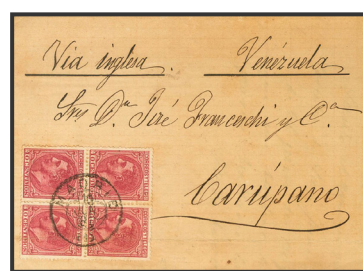 Via inglesa. Venézuela
Sres D.n José Franceschi y C.a
Carúpano
MADRID